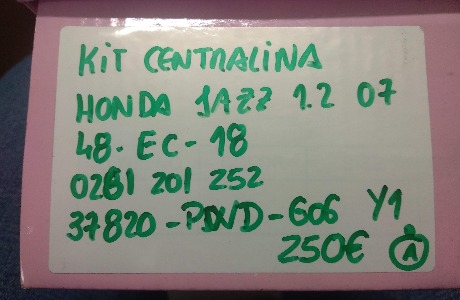 KIT CENTRALINA
HONDA JAZZ 1.2 07
48-EC-18
0261 201 252
37820-PDND-G06 Y1
250€ 1